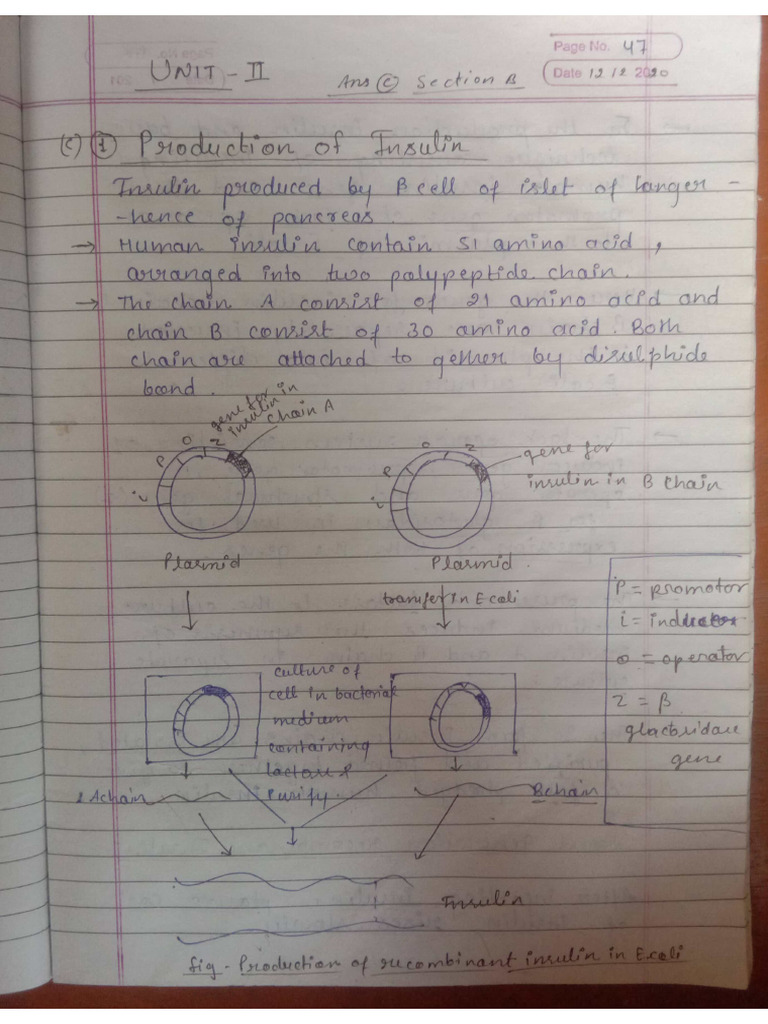 Page No. 47
UNIT - II
Ans (C) Section B
Date 12/2 2020
(C) (1) Production of Insulin
Insulin produced by B cell of islet of langer -
-hence of pancreas.
→ Human insulin contain 51 amino acid,
arranged into two polypeptide chain.
→ The chain A consist of 21 amino acid and
chain B consist of 30 amino acid. Both
chain are attached to gether by disulphide
bond.
gene for
insulin in
chain A
i P O Z
i P O Z
gene for
insulin in B chain
Plasmid
Plasmid
transfer in E.coli
P = promotor
i = inductor
o = operator
Z = β
glactosidase
gene
culture of
cell in bacterial
medium
containing
lactose &
Purify
Achain
Bchain
Insulin
fig - Production of recombinant insulin in E.coli